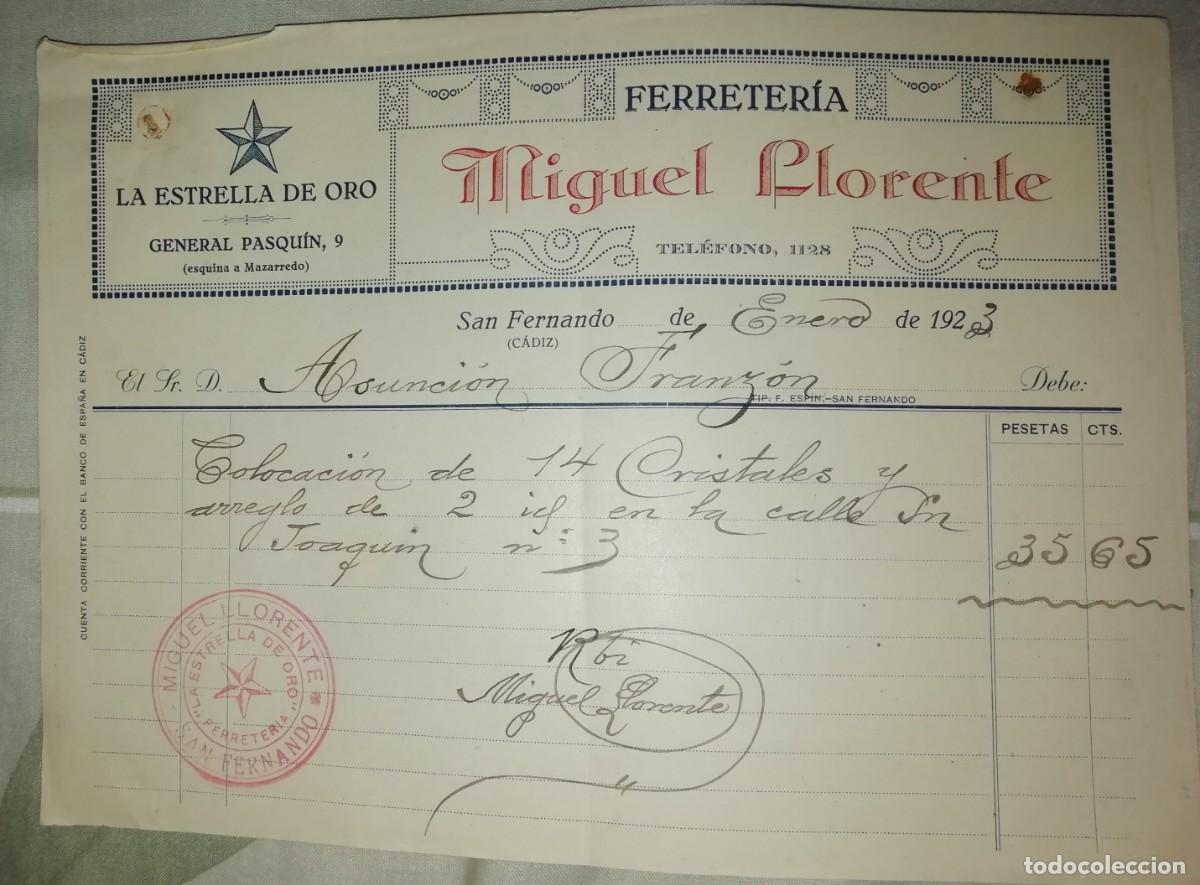 LA ESTRELLA DE ORO
GENERAL PASQUÍN, 9
(esquina a Mazarredo)
FERRETERÍA
Miguel Llorente
TELÉFONO, 1128
San Fernando de Enero de 1923
(CÁDIZ)
El Sr. D. Asunción Franzón Debe:
TIP. F. ESPÍN.-SAN FERNANDO
PESETAS CTS.
Colocación de 14 Cristales y
arreglo de 2 id en la calle Sn
Joaquin nº 3 35 65
Rbi
Miguel Llorente
MIGUEL LLORENTE
SAN FERNANDO
"LA ESTRELLA DE ORO"
FERRETERIA
CUENTA CORRIENTE CON EL BANCO DE ESPAÑA EN CÁDIZ
todocoleccion